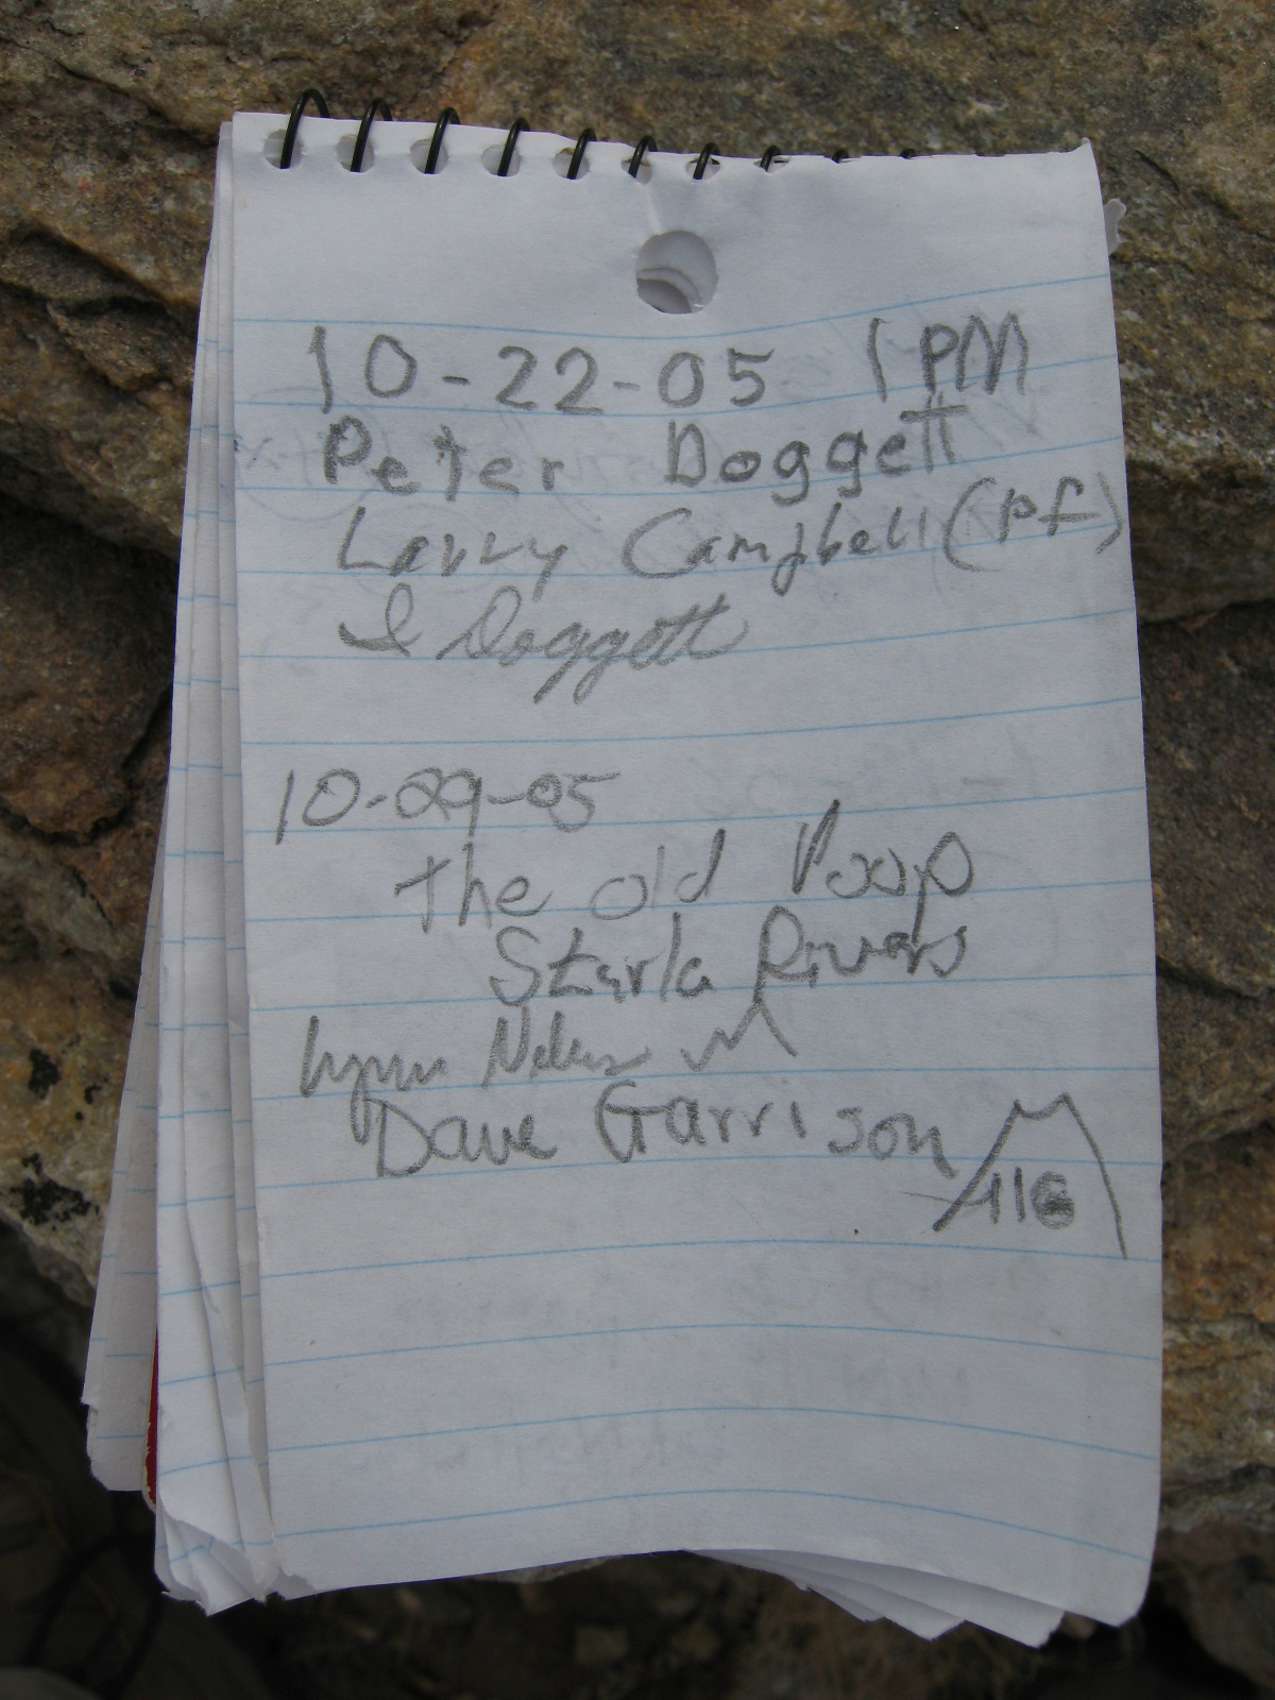 10-22-05 1 PM
Peter Doggett
Larry Campbell (pf)
I Doggett
10-29-05
the old Poop
Starla Rivers
Lynn
Dave Garrison
116